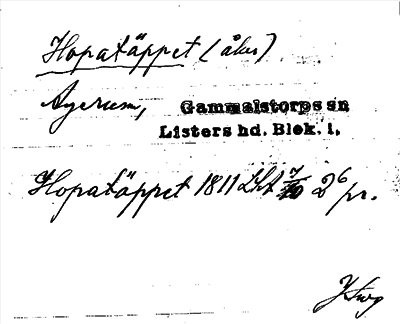 Hopatäppet (åker)
Agerum, Gammalstorps sn
Listers hd. Blek. l.
Hopatäppet 1811 LSA 7/10 26 pr.